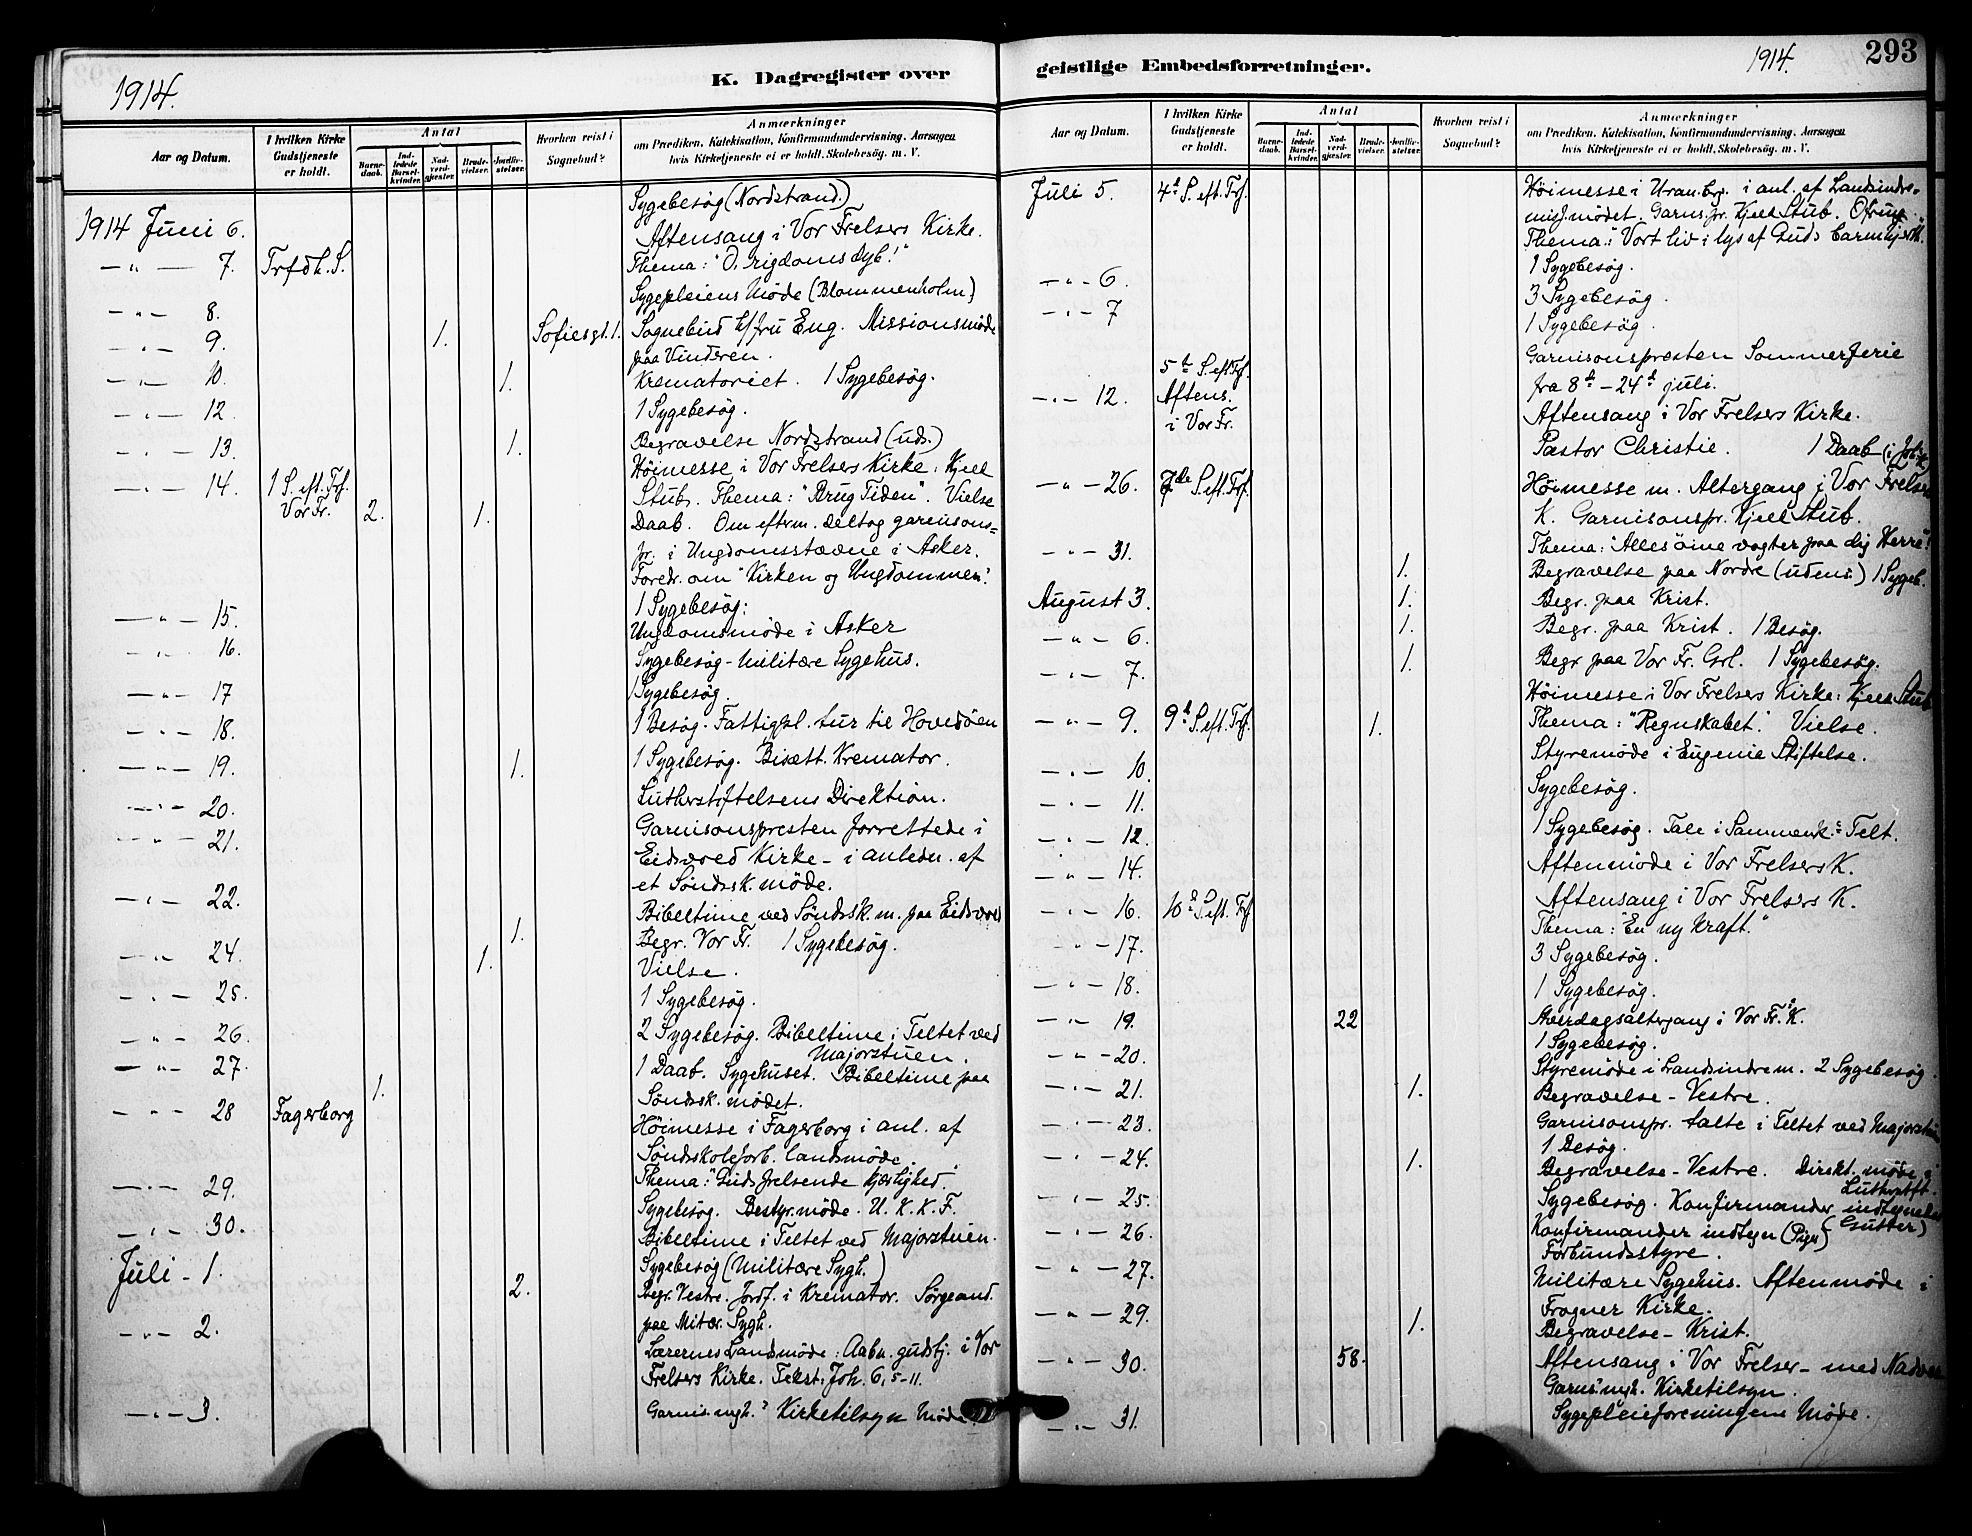 1914.
K. Dagregister over
Aar og Datum.
I hvilken Kirke Gudstjeneste er holdt.
Antal
Barnedaab.
Indledede Barselkvinder.
Nadverdgjæster.
Brudevielser.
Jordfæstelser.
Hvorhen reist i Sognebud?
Anmærkninger
om Prædiken, Katekisation, Konfirmandundervisning, Aarsagen
hvis Kirketjeneste ei er holdt, Skolebesøg, m. V.
1914 Juni 6. Sygebesøg (Nordstrand.)
Aftensang i Vor Frelsers Kirke.
— " — 7. Trfdh. S. Thema: "O, rigdoms dyb!"
Sygepleiens Møde (Blommenholm)
— " — 8.
— " — 9. 1. Sofiesgt. 1. Sognebud h/fru Eng. Missionsmøde
paa Vinderen.
— " — 10. 1. Krematoriet. 1 Sygebesøg.
— " — 12. 1 Sygebesøg.
— " — 13. 1. Begravelse Nordstrand (uds.)
Høimesse i Vor Frelsers Kirke: Kjell
— " — 14. 1 S. eft. Trf. Stub. Thema: "Brug Tiden". Vielse
Vor Fr. 2. 1. Daab. Om efterm. deltog garnisons=
pr. i Ungdomsstævne i Asker.
Foredr. om "Kirken og Ungdommen."
1 Sygebesøg:
— " — 15. Ungdomsmøde i Asker
— " — 16. Sygebesøg - Militære Sygehus.
— " — 17 1 Sygebesøg.
— " — 18. 1 Besøg. Fattigpl. tur til Hovedøen
— " — 19. 1. 1 Sygebesøg. Bisætt. Kremator.
— " — 20. Lutherstiftelsens Direktion.
— " — 21. Garnisonspresten forrettede i
Eidsvold Kirke - i anledn. af
et Søndssk. møde.
— " — 22. Bibeltime ved Søndssk. m. paa Eidsvold
1. Begr. Vor Fr. 1 Sygebesøg.
— " — 24. 1. Vielse.
— " — 25. 1 Sygebesøg.
— " — 26 2 Sygebesøg. Bibeltime i Teltet ved
Majorstuen.
— " — 27. 1. 1 Daab. Sygehuset. Bibeltime paa
Søndssk. mødet.
— " — 28 Fagerborg Høimesse i Fagerborg i anl. af
Søndsskoleforb. landsmøde.
Thema: "Guds frelsende kjærlighed."
— " — 29. Sygebesøg. Bestyr. møde. U. K. K. F.
— " — 30. Bibeltime i Teltet ved Majorstuen.
Juli - 1. Sygebesøg (Militære Sygh.)
2. Begr. Vestre. Jordf. i Kremator. Sørgeand.
paa Militær. Sygh.
— " — 2. Lærernes Landsmøde: Aabn. gudstj. i Vor
Frelsers Kirke. Tekst: Joh. 6, 5-11.
— " — 3. Garnis. mgh. Kirketilsyn Møde.
geistlige Embedsforretninger.
1914.
293
Aar og Datum.
I hvilken Kirke Gudstjeneste er holdt.
Antal
Barnedaab.
Indledede Barselkvinder.
Nadverdgjæster.
Brudevielser.
Jordfæstelser.
Hvorhen reist i Sognebud?
Anmærkninger
om Prædiken, Katekisation, Konfirmandundervisning, Aarsagen
hvis Kirketjeneste ei er holdt, Skolebesøg, m. V.
Juli 5. 4d S. eft. Trf. Høimesse i Uranbg. i anl. af Landsindre-
mis. mødet. Garns. pr. Kjell Stub.
Thema: "Vort liv i lys af Guds barmhjerth."
1 Sygebesøg.
— " — 6. 3 Sygebesøg.
— " — 7 1 Sygebesøg.
Garnisonspresten Sommerferie
5te S. eft Trf. fra 8d - 24d juli.
— " — 12. Aftens. Aftensang i Vor Frelsers Kirke.
i Vor Fr. Pastor Christie. 1 Daab
— " — 26. 7de S. eft. Trf. Høimesse m. Altergang i Vor Frelser
K. Garnisonspr. Kjell Stub.
Thema: "Alles öine vogter paa dig Herre"!
— " — 31. 1. Begravelse paa Nordre (udens.) 1 Sygeb.
August 3. 1. Begr. paa Krist.
— " — 6. 1. Begr. paa Krist. 1 Besøg.
— " — 7. 1. Begr. paa Vor Fr. Grl. 1 Sygebesøg.
Høimesse i Vor Frelsers Kirke: Kjell Stub
— " — 9. 9d S. eft. Trf. 1. Thema: "Regnskabet". Vielse.
Styremøde i Eugenie Stiftelse.
— " — 10. Sygebesøg.
— " — 11. 1 Sygebesøg. Tale i Sammenk: Telt.
— " — 12. Aftenmøde i Vor Frelsers K.
— " — 14. Aftensang i Vor Frelsers K.
— " — 16. 10d S. eft. Trf Thema: "En ny Kraft."
— " — 17. 3 Sygebesøg.
— " — 18. 1 Sygebesøg.
— " — 19. 22 Hverdagsaltergang i Vor Fr. K.
1 Sygebesøg.
— " — 20. Styremøde i Landsindre m. 2 Sygebesøg.
— " — 21. 1. Begravelse - Vestre.
— " — 23. Garnisonspr. talte i Teltet ved Majorstuen
1 Besøg.
— " — 24. 1. Begravelse - Vestre. Direkt. møde i
Lutherstft.
— " — 25. Sygebesøg. Konfirmander indtegnede
(Gutter)
— " — 26. Konfirmander indtegn (Piger)
Forbundsstyre.
— " — 27. Militære Sygehus. Aftenmøde i
Frogner Kirke.
— " — 29. 1. Begravelse - Krist.
— " — 30. 58. Aftensang i Vor Frelser - med Nadver
Garns. mgh. Kirketilsyn.
— " — 31. Sygepleieforeningens Møde.